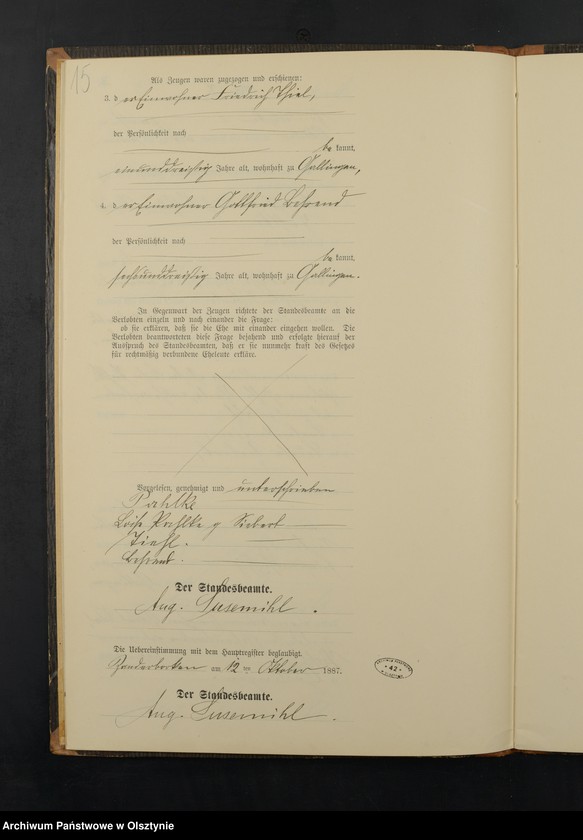 15
Als Zeugen waren zugezogen und erschienen:
3. der Einwohner Friedrich Thiel,
der Persönlichkeit nach
be kannt,
einunddreißig Jahre alt, wohnhaft zu Gallingen,
4. der Einwohner Gottfried Behrend
der Persönlichkeit nach
be kannt,
sechsunddreißig Jahre alt, wohnhaft zu Gallingen.
In Gegenwart der Zeugen richtete der Standesbeamte an die
Verlobten einzeln und nach einander die Frage:
ob sie erklären, daß sie die Ehe mit einander eingehen wollen. Die
Verlobten beantworteten diese Frage bejahend und erfolgte hierauf der
Ausspruch des Standesbeamten, daß er sie nunmehr kraft des Gesetzes
für rechtmäßig verbundene Eheleute erkläre.
Vorgelesen, genehmigt und unterschrieben
Pahlke
Pahlke g Siebert
Behrend.
Der Standesbeamte.
Aug. Susemihl.
Die Uebereinstimmung mit dem Hauptregister beglaubigt.
am 12 ten Oktober 1887.
42
Der Standesbeamte.
Aug. Susemihl.
Archiwum Państwowe w Olsztynie